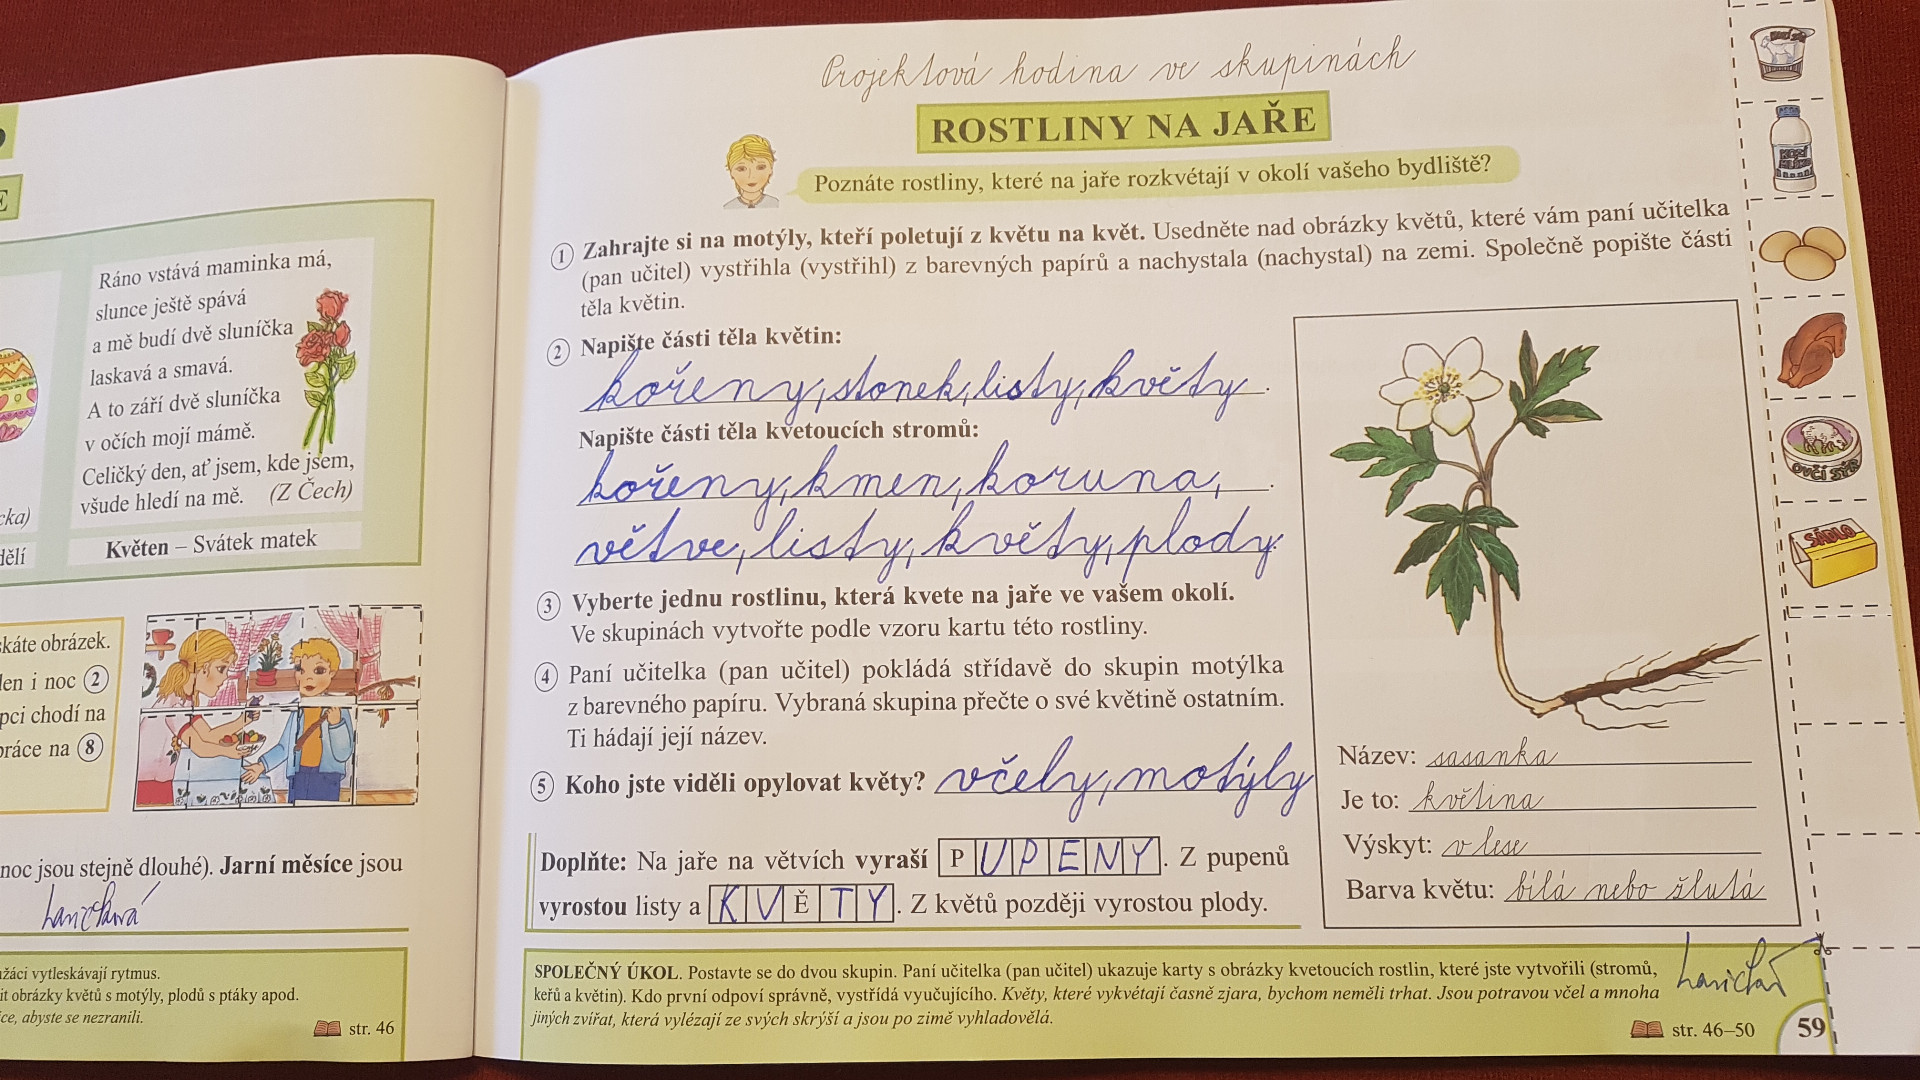 E
Ráno vstává maminka má,
slunce ještě spává
a mě budí dvě sluníčka
laskavá a smavá.
A to září dvě sluníčka
v očích mojí mámě.
Celičký den, ať jsem, kde jsem,
všude hledí na mě. (Z Čech)
cka)
dělí
Květen – Svátek matek
skáte obrázek.
den i noc 2
pci chodí na
práce na 8
noc jsou stejně dlouhé). Jarní měsíce jsou
žáci vytleskávají rytmus.
it obrázky květů s motýly, plodů s ptáky apod.
ce, abyste se nezranili.
str. 46
Projektová hodina ve skupinách
ROSTLINY NA JAŘE
Poznáte rostliny, které na jaře rozkvétají v okolí vašeho bydliště?
1 Zahrajte si na motýly, kteří poletují z květu na květ. Usedněte nad obrázky květů, které vám paní učitelka
(pan učitel) vystřihla (vystřihl) z barevných papírů a nachystala (nachystal) na zemi. Společně popište části
těla květin.
2 Napište části těla květin:
kořeny, stonek, listy, květy.
Napište části těla kvetoucích stromů:
kořeny, kmen, koruna,.
větve, listy, květy, plody.
3 Vyberte jednu rostlinu, která kvete na jaře ve vašem okolí.
Ve skupinách vytvořte podle vzoru kartu této rostliny.
4 Paní učitelka (pan učitel) pokládá střídavě do skupin motýlka
z barevného papíru. Vybraná skupina přečte o své květině ostatním.
Ti hádají její název.
5 Koho jste viděli opylovat květy? včely, motýly
Doplňte: Na jaře na větvích vyraší PUPENY. Z pupenů
vyrostou listy a KVĚTY. Z květů později vyrostou plody.
Název: sasanka
Je to: květina
Výskyt: v lese
Barva květu: bílá nebo žlutá
SPOLEČNÝ ÚKOL. Postavte se do dvou skupin. Paní učitelka (pan učitel) ukazuje karty s obrázky kvetoucích rostlin, které jste vytvořili (stromů,
keřů a květin). Kdo první odpoví správně, vystřídá vyučujícího. Květy, které vykvétají časně zjara, bychom neměli trhat. Jsou potravou včel a mnoha
jiných zvířat, která vylézají ze svých skrýší a jsou po zimě vyhladovělá.
str. 46–50
59
OVČÍ SÝR
SÁDLO